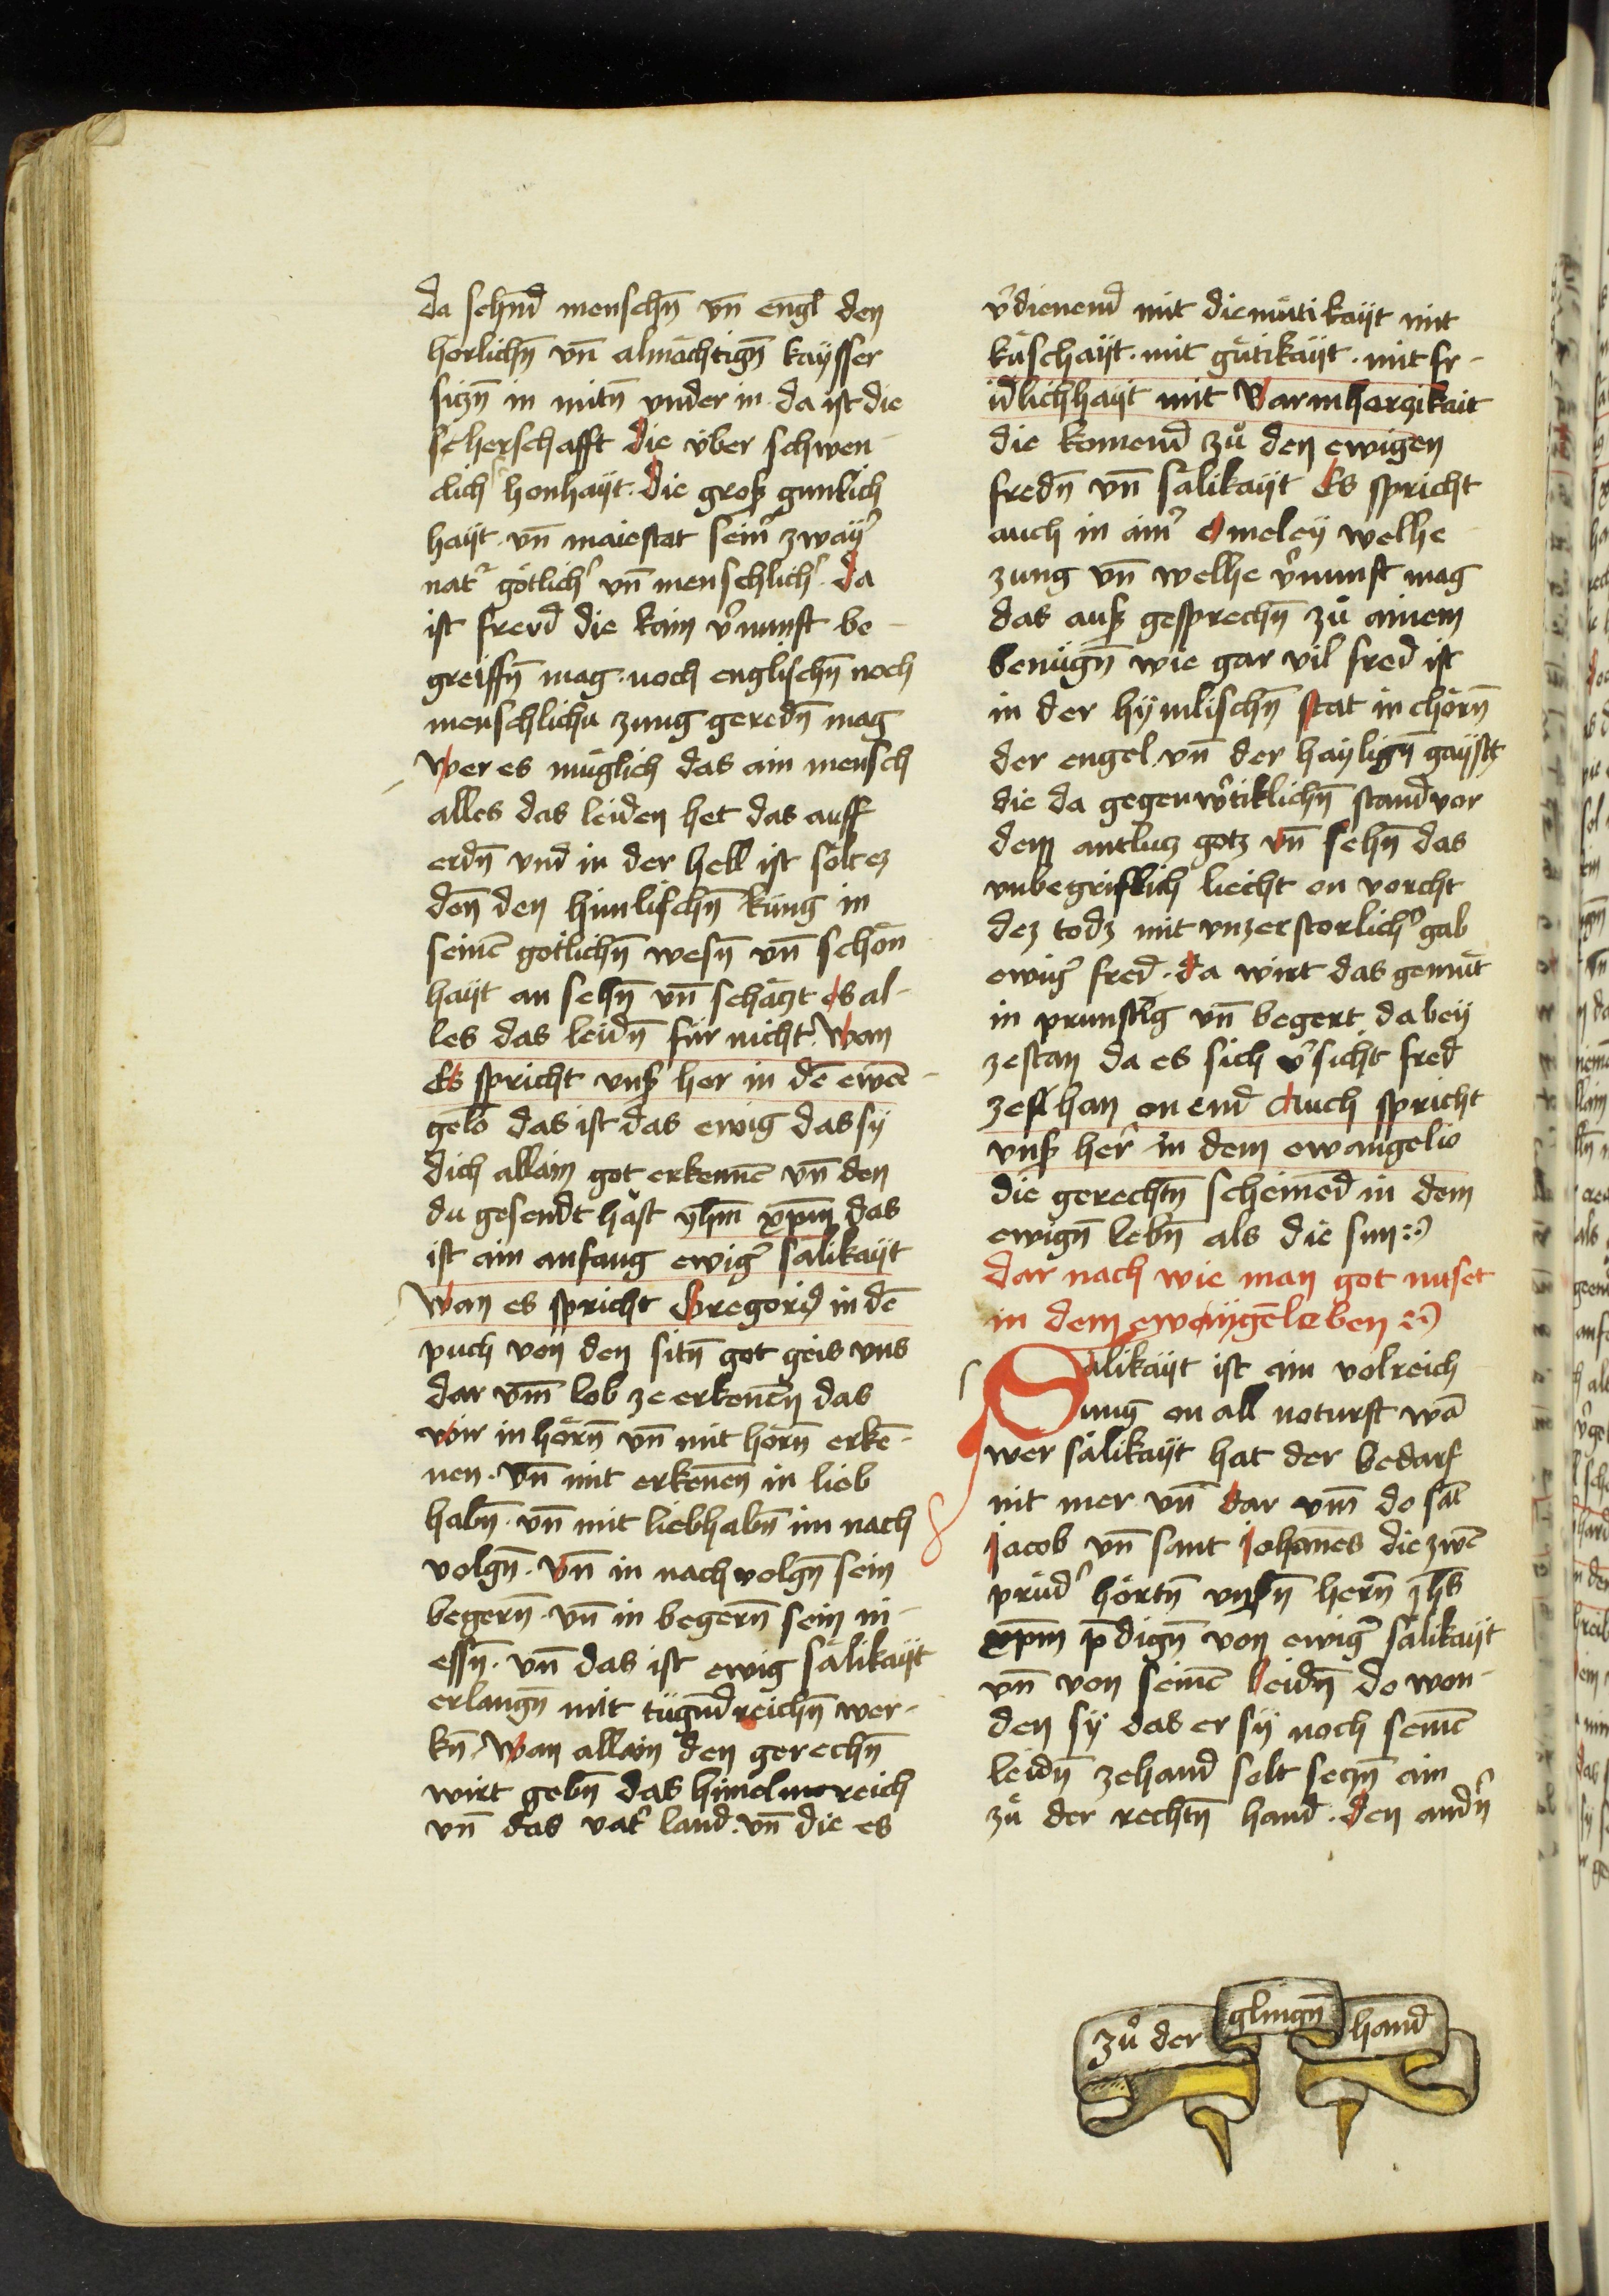 da sehnd menschn̄ vn̄ engl den
hörlichn̄ vn̄ almächtign̄ kaÿsser
siczn̄ in mitn̄ vnder in · da ist die
scherschafft die v̈ber schwen-
clich honhaÿt · Die groß gunlich
haÿt · vn̄ maiestat seinˀ zwaÿˀ
natˀ götlichˀ vn̄ menschlichˀ · da
ist freud die kain vˀnunft be-
greiffn̄ mag · noch englischn̄ noch
menschlichn zung geredn̄ mag
Wer es müglich das ain mensch
alles das leiden het das auff
erdn̄ vnd in der hell ist sölt ez
den̄ den himlischn̄ küng in
seinē götlichn̄ wesn̄ vn̄ schön
haÿt an sehn̄ vn̄ schäczt es al-
les das leidn̄ für nicht · Wan
Es spricht vnß her in dē ewē-
gelō das ist das ewig das sÿ
dich allain got erkennē vn̄ den
du gesendt häst yhm̄ xp̄m das
ist ain anfang ewigˀ sälikaÿt
Wan es spricht Gregoriꝰ in dē
puch von den sitn̄ got geis vns
dar vm̄ lob ze erkenēn das
wir in hörn̄ vn̄ mit hörn̄ erkē-
nen · Vn̄ mit erkenen̄ in lieb
habn̄ · vn̄ mit liebhabn̄ im nach
volgn̄ · Vn̄ in nach volgn̄ sein
begern̄ · vn̄ in begern̄ sein ni-
essn̄ · vn̄ das ist ewig sälikaÿt
erlangn̄ mit tügndreichn̄ wer-
kn̄ · Wan allain den gerechn̄
wirt gebn̄ das himelm reich
vn̄ das vatˀ land · vn̄ die es
vˀdienend mit diemütikaÿt mit
küschaÿt · mit gütikaÿt · mit fr-
idlichhaÿt mit Barmherzikait
die komend zů den ewigen
fredn̄ vn̄ sälikaÿt Es spricht
auch in ainˀ Omeleÿ welhe
zung vn̄ welhe vˀnunft mag
das auß gesprechn̄ zů ainem
benügn̄ wie gar vil fred ist
in der hÿmlischn̄ stat in chörn̄
der engel · vn̄ der haÿlign̄ gaÿst
die da gegenwˀtiklichn̄ stand vor
dem antlucz gotz vn̄ sehn̄ das
vnbegriflichˀ liecht on vorcht
dez todz mit vnzerstorlichˀ gab
ewigˀ fred · da wirt das gemüt
in prunstig vn̄ begert da beÿ
zestan da es sich vˀsicht fred
zehan on end Auch spricht
vnß herˀ in dem ewangelio
die gerechtn̄ scheinēd in dem
ewign̄ lebn̄ als die sun
dar nach wie man got nuset
in dem ewaÿgēleben
Sälikaÿt ist ain volreich
Dung on all noturft wā
wer sälikaÿt hat der bedarf
nit mer · vn̄ dar vm̄ do sāt
Jacob vn̄ sant Johan̄es die zwē
prüdˀ hörtn̄ vnsn̄ hern̄ Jhs̄
xp̄m p̄dign̄ von ewigˀ sälikaÿt
vn̄ von seinē leidn̄ do won-
den sÿ das er sÿ noch seinē
leidn̄ zehand solt seczn̄ ain
zů der rechtn̄ hand · den andˀn
zů der glingn̄ hand